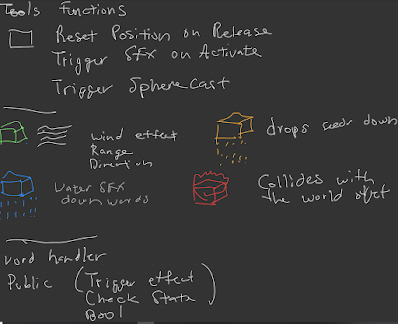 Tools Functions
Reset Position on Release
Trigger SFX on Activate
Trigger SphereCast
wind effect
Range
Direction
drops seeds down
Water SFX
downwords
Collides with
the world
void handler
Public (Trigger effect
Check State
Bool)